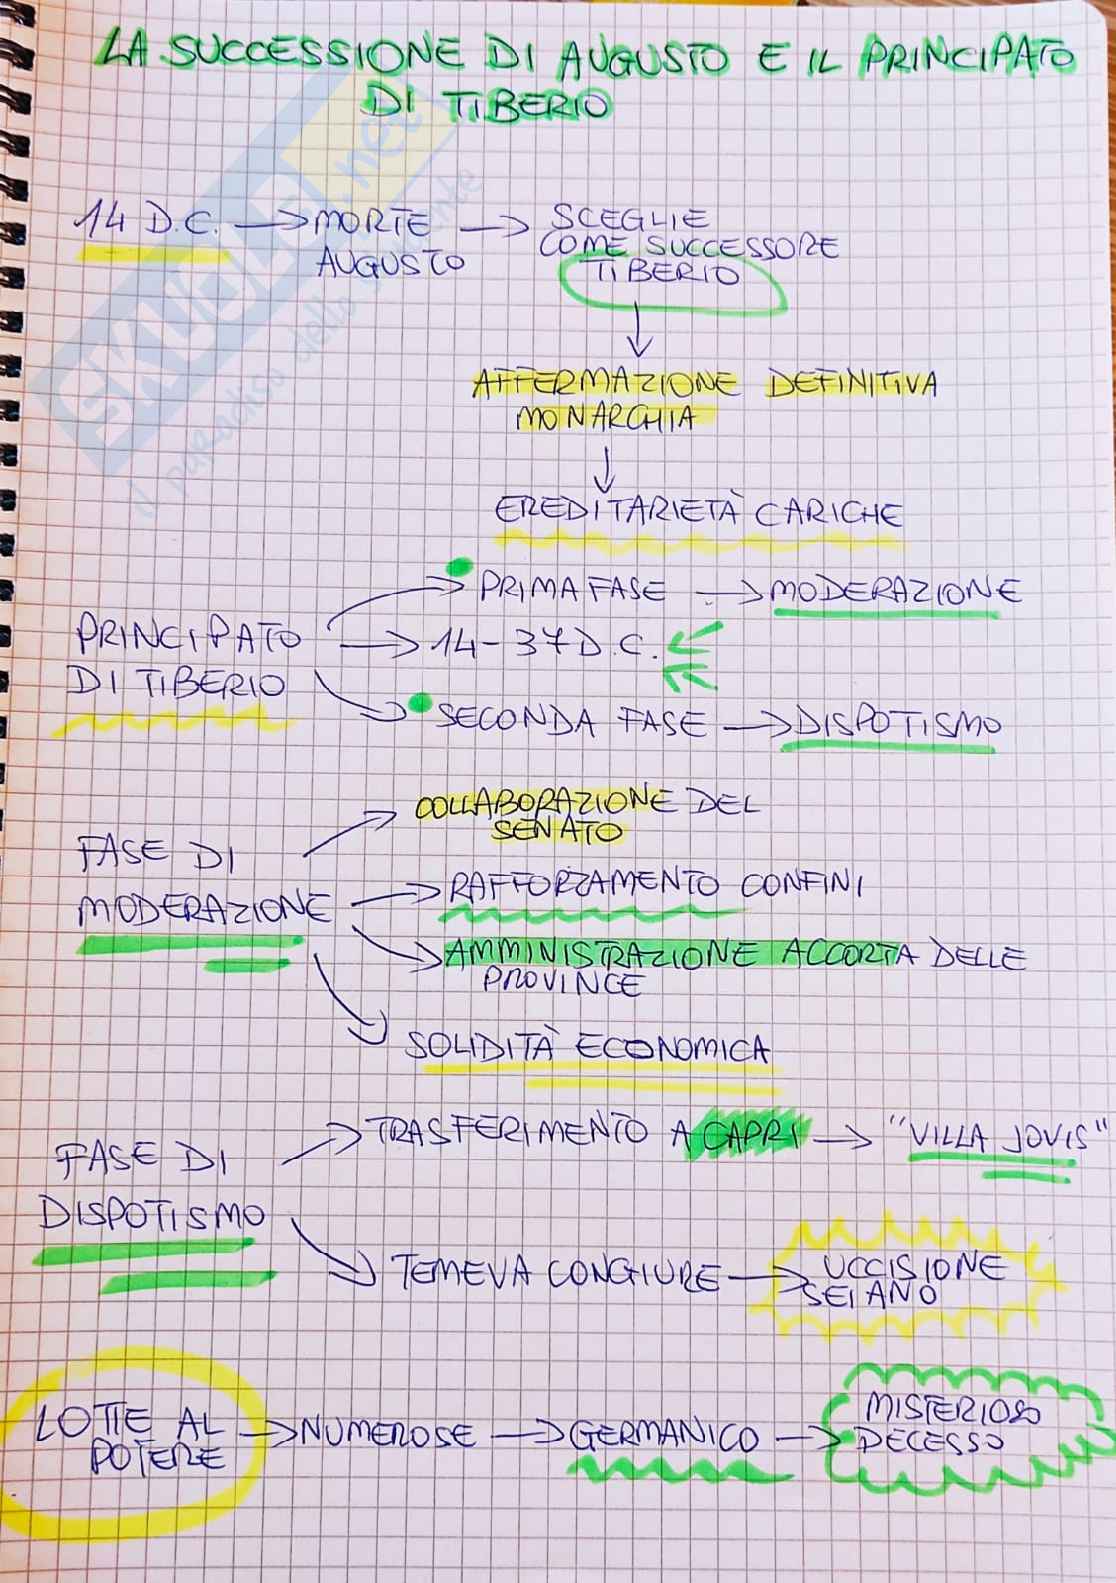 LA SUCCESSIONE DI AUGUSTO E IL PRINCIPATO
DI TIBERIO
14 D.C. → MORTE AUGUSTO → SCEGLIE
COME SUCCESSORE
TIBERIO
AFFERMAZIONE DEFINITIVA
MONARCHIA
EREDITARIETÀ CARICHE
PRINCIPATO
DI TIBERIO
PRIMA FASE → MODERAZIONE
14-37 D.C.
SECONDA FASE → DISPOTISMO
FASE DI
MODERAZIONE
COLLABORAZIONE DEL
SENATO
RAFFORZAMENTO CONFINI
AMMINISTRAZIONE ACCORTA DELLE
PROVINCE
SOLIDITÀ ECONOMICA
FASE DI
DISPOTISMO
TRASFERIMENTO A CAPRI → "VILLA JOVIS"
TEMEVA CONGIURE → UCCISIONE
SEIANO
LOTTE AL
POTERE
→ NUMEROSE → GERMANICO → MISTERIOSO
DECESSO
SKUOLA.net
il paradiso dello studente